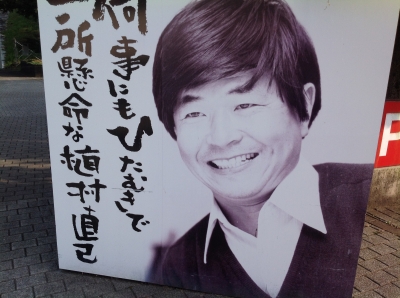 何事にもひたむきで
一所懸命な植村直己
P